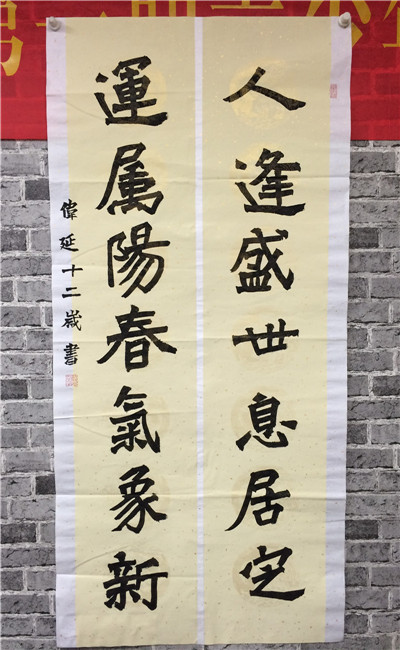 人逢盛世息居定
運属陽春氣象新
偉延十二歲書